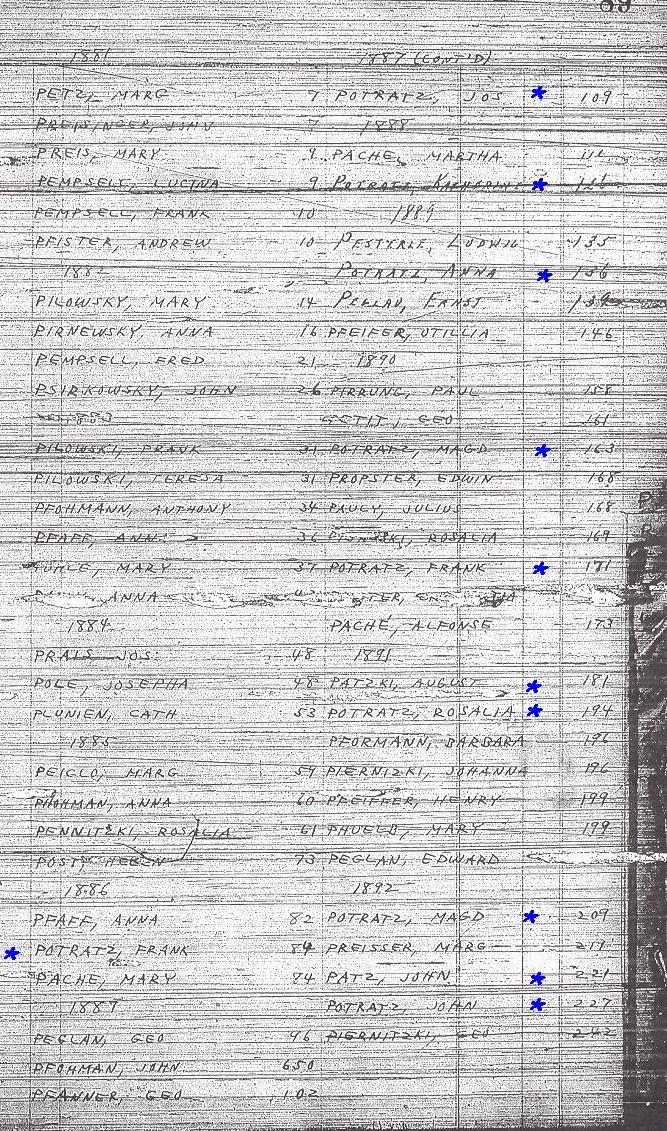 89
1881
PETZ, MARG 7
PREISINGER, JOHN 7
PREIS, MARY 9
PEMPSELL, LUCINA 9
PEMPSELL, FRANK 10
PFISTER, ANDREW 10
1882
PILOWSKY, MARY 14
PIRNEWSKY, ANNA 16
PEMPSELL, FRED 21
PSIRKOWSKY, JOHN 26
1883
PILOWSKI, FRANK 31
PILOWSKI, TERESA 31
PFOHMANN, ANTHONY 34
PFAFF, ANN 36
MARY 37
ANNA
1884
PRAIS JOS. 48
POLE, JOSEPHA 48
PLUNIEN, CATH 53
1885
PEIGLO, MARG 59
PHOHMAN, ANNA 60
PENNITZKI, ROSALIA 61
POST, HELEN 73
1886
PFAFF, ANNA 82
* POTRATZ, FRANK 84
PACHE, MARY 84
1887
PEGLAN, GEO 96
PFOHMAN, JOHN 650
PFANNER, GEO 102
1887 (CONT'D)
POTRATZ, JOS * 109
1888
PACHE, MARTHA
POTRATZ, KATHARINE * 126
1889
PESTYRLE, LUDWIG 135
POTRATZ, ANNA * 136
PEGLAU, ERNST 139
PFEIFER, OTILLIA 146
1890
PIRRUNG, PAUL 158
GEO 161
POTRATZ, MAGD * 163
PROPSTER, EDWIN 168
PAULY, JULIUS 168
ROSALIA 169
POTRATZ, FRANK * 171
PACHE, ALFONSE 173
1891
PATZKI, AUGUST * 181
POTRATZ, ROSALIA * 194
PFORMANN, BARBARA 196
PIERNIZKI, JOHANNA 196
PFEIFFER, HENRY 199
MARY 199
PEGLAN, EDWARD
1892
POTRATZ, MAGD * 209
PREISSER, MARG 219
PATZ, JOHN * 221
POTRATZ, JOHN * 227
PIERNITZKI, GEO 242